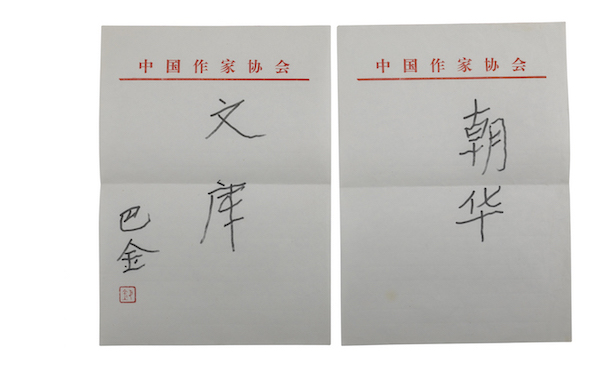 中国作家协会
朝华
中国作家协会
文库
巴金